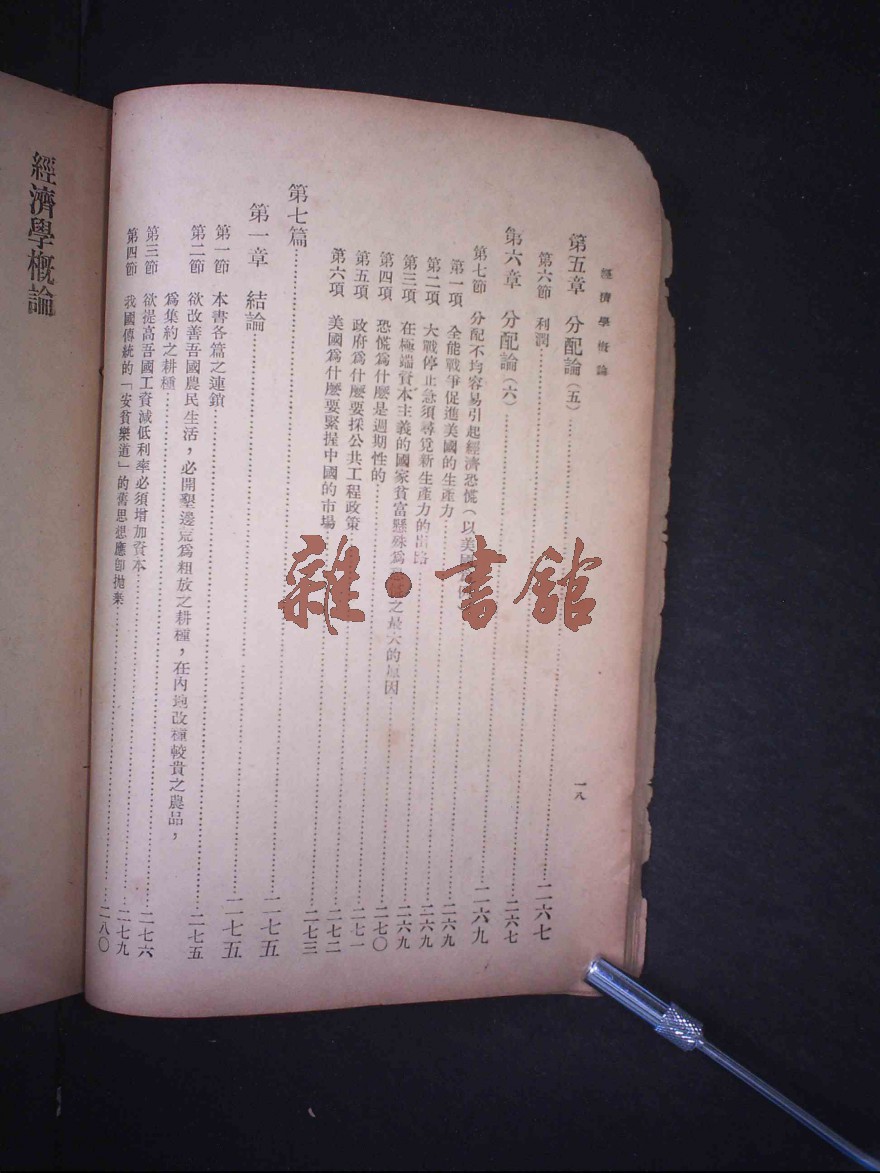 經濟學概論
一八
第五章 分配論(五)……二六七
第六節 利潤……二六七
第六章 分配論(六)……二六九
第七節 分配不均容易引起經濟恐慌(以美國 例)……二六九
第一項 全能戰爭促進美國的生產力……二六九
第二項 大戰停止急須尋覓新生產力的出路……二六九
第三項 在極端資本主義的國家貧富懸殊爲 之最大的原因……二七〇
第四項 恐慌爲什麼是週期性的……二七一
第五項 政府爲什麼要採公共工程政策……二七二
第六項 美國爲什麼要緊握中國的市場……二七三
第七篇……二七五
第一章 結論……二七五
第一節 本書各篇之連鎖……二七五
第二節 欲改善吾國農民生活，必開墾邊荒爲粗放之耕種，在內地改種較貴之農品，
爲集約之耕種……二七六
第三節 欲提高吾國工資減低利率必須增加資本……二七九
第四節 我國傳統的「安貧樂道」的舊思想應卽拋棄……二八〇
經濟學概論
雜·書館